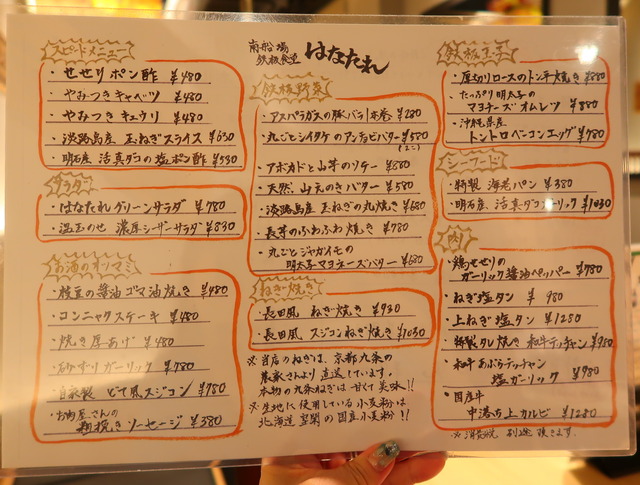 スピードメニュー
・せせりポン酢 ¥480
・やみつきキャベツ ¥480
・やみつきキュウリ ¥480
・淡路島産 玉ねぎスライス ¥630
・明石産 活真ダコの塩ポン酢 ¥530
サラダ
・はなたれグリーンサラダ ¥780
・温玉のせ 濃厚シーザーサラダ ¥830
お酒のオツマミ
・枝豆の醤油ゴマ油焼き ¥480
・コンニャクステーキ ¥480
・焼き厚あげ ¥480
・砂ずりガーリック ¥780
・自家製 どて風スジコン ¥780
・お肉屋さんの
粗挽きソーセージ ¥380
南船場
鉄板食堂 はなたれ
鉄板野菜
・アスパラガスの豚バラ1本巻 ¥280
・丸ごとシイタケのアンチョビバター ¥580
(2コ)
・アボカドと山芋のソテー ¥880
・天然 山えのきバター ¥580
・淡路島産 玉ねぎの丸焼き ¥680
・長芋のふわふわ焼き ¥780
・丸ごとジャガイモの
明太子マヨネーズバター ¥680
ねぎ焼き
・長田風 ねぎ焼き ¥930
・長田風 スジコンねぎ焼き ¥1030
※当店のねぎは、京都九条の
農家さんより直送しています。
本物の九条ねぎは甘くて美味!!
※生地に使用している小麦粉は
北海道 の国産小麦粉!!
鉄板玉子
・厚切りロースのトン平焼き ¥880
・たっぷり明太子の
マヨネーズオムレツ ¥880
・沖縄県産
トントロベーコンエッグ ¥780
シーフード
・特製 海老パン ¥380
・明石産 活真ダコガーリック ¥1030
肉
・鶏せせりの
ガーリック醤油ペッパー ¥780
・ねぎ塩タン ¥980
・上ねぎ塩タン ¥1280
・特製タレ焼き 和牛テッチャン ¥980
・和牛 あぶらテッチャン
塩ガーリック ¥980
・国産牛
中落ち上カルビ ¥1280
※消費税 別途頂きます。